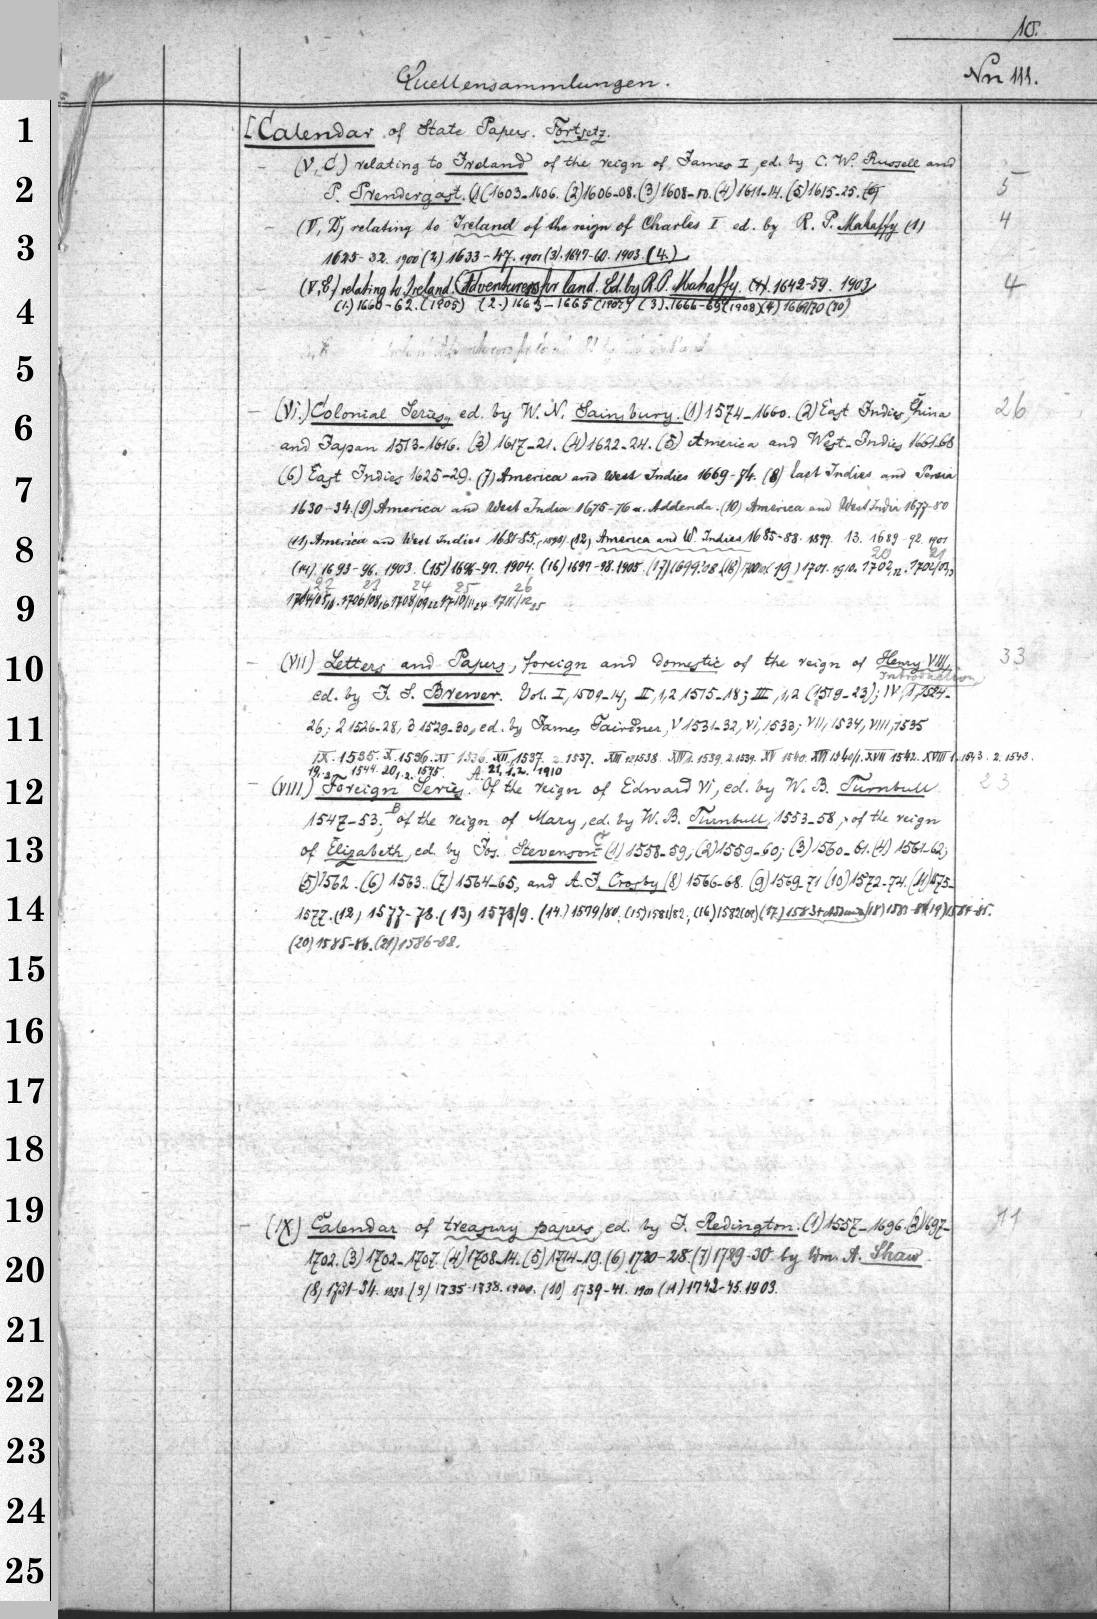 10.
Quellensammlungen.
Nn 111.
1
[Calendar of State Papers. Fortsetz.
(V, C) relating to Ireland of the reign of James I, ed. by C. W. Russell and
2
P. Prendergast. (1) 1603-1606. (2) 1606-08. (3) 1608-10. (4) 1611-14. (5) 1615-25.
5
(V, D) relating to Ireland of the reign of Charles I ed. by R. P. Mahaffy (1)
4
3
1625-32. 1900 (2) 1633-47. 1901 (3). 1647-60. 1903. (4.)
(V, E) relating to Ireland. Adventurers for land. Ed. by R. P. Mahaffy. 1642-59. 1903
4
4
(1.) 1660-62. (1905) (2.) 1663-1665 (1907) (3). 1666-69 (1908) (4) 1669/70 (10)
5
(VI.) Colonial Series, ed. by W. N. Sainsbury. (1) 1574-1660. (2) East Indies, China
26
6
and Japan 1513-1616. (3) 1617-21. (4) 1622-24. (5) America and West-Indies 1661-68
7
(6) East Indies 1625-29. (7) America and West Indies 1669-74. (8) East Indies and Persia
1630-34. (9) America and West India 1675-76 a. Addenda. (10) America and West India 1677-80
8
(11) America and West Indies 1681-85. (1898). (12) America and W. Indies 1685-88. 1899. 13. 1689-92. 1901
20 21
(14). 1693-96. 1903. (15) 1696-97. 1904. (16) 1697-98. 1905. (17) 1699. 08 (18) 1700 (19) 1701. 1910. 1702, 12. 1702/03, 13
22 23 24 25 26
9
1704/05, 16. 1706/08, 16 1708/09 22 1710/11 24. 1711/12 25
10
(VII) Letters and Papers, foreign and domestic of the reign of Henry VIII,
33
Introduction,
ed. by J. S. Brewer. Vol. I, 1509-14; II, 1, 2 1515-18; III, 1, 2 (1519-23); IV, 1, 1524-
11
26; 2 1526-28, 3 1529-30, ed. by James Gairdner, V 1531-32, VI, 1533; VII, 1534, VIII, 1535
IX. 1535. X. 1536. XI 1536. XII, 1537. 2. 1537. XIII 1. 1538. XIV 1. 1539. 2. 1539. XV 1540. XVI 1540/1. XVII 1542. XVIII 1. 1543. 2. 1543.
19, 1.2. 1544. 20, 1.2. 1545. A. 21, 1.2. 1910
12
(VIII) Foreign Series. Of the reign of Edward VI, ed. by W. B. Turnbull
23
1547-53; B of the reign of Mary, ed. by W. B. Turnbull, 1553-58; of the reign
13
of Elizabeth, ed. by Jos. Stevenson C (1) 1558-59; (2) 1559-60; (3) 1560-61. (4) 1561-62;
(5) 1562. (6) 1563. (7) 1564-65, and A. J. Crosby (8) 1566-68. (9) 1569-71 (10) 1572-74. (11) 1575-
14
1577. (12) 1577-78. (13) 1578/9. (14.) 1579/80. (15) 1581/82. (16) 1582 (09) (17.) 1583 + Addenda (18) 1583-84 (19) 1584-85.
15
(20) 1585-86. (21) 1586-88.
16
17
18
19
(IX) Calendar of treasury papers, ed. by J. Redington. (1) 1557-1696. (2) 1697-
11
20
1702. (3) 1702-1707. (4) 1708-14. (5) 1714-19. (6) 1720-28. (7) 1729-30. by Wm. A. Shaw
(8) 1731-34. 1898. (9) 1735-1738. 1900. (10) 1739-41. 1901 (11) 1742-45. 1903.
21
22
23
24
25